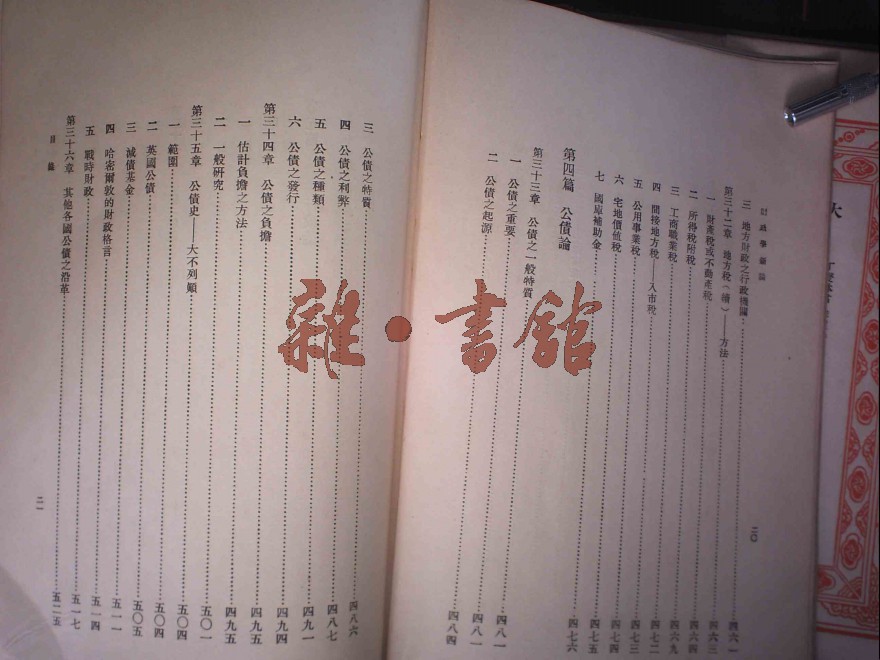 財政學新論
三 地方財政之行政機關……四六一
第三十二章 地方稅(續)——方法……四六三
一 財產稅或不動產稅……四六三
二 所得稅附稅……四六四
三 工商職業稅……四六九
四 間接地方稅——入市稅……四七二
五 公用事業稅……四七四
六 宅地價值稅……四七四
七 國庫補助金……四七五
第四篇 公債論……四七六
第三十三章 公債之一般特質……四八一
一 公債之重要……四八一
二 公債之起源……四八四
二〇
三 公債之特質……四八六
四 公債之利弊……四八七
五 公債之種類……四九一
六 公債之發行……四九四
第三十四章 公債之負擔……四九五
一 估計負擔之方法……四九五
二 一般研究……五〇一
第三十五章 公債史——大不列顛……五〇四
一 範圍……五〇四
二 英國公債……五〇五
三 減債基金……五一一
四 哈密爾敦的財政格言……五一四
五 戰時財政……五一七
第三十六章 其他各國公債之沿革……五二五
目錄
二一
雜·書館
大